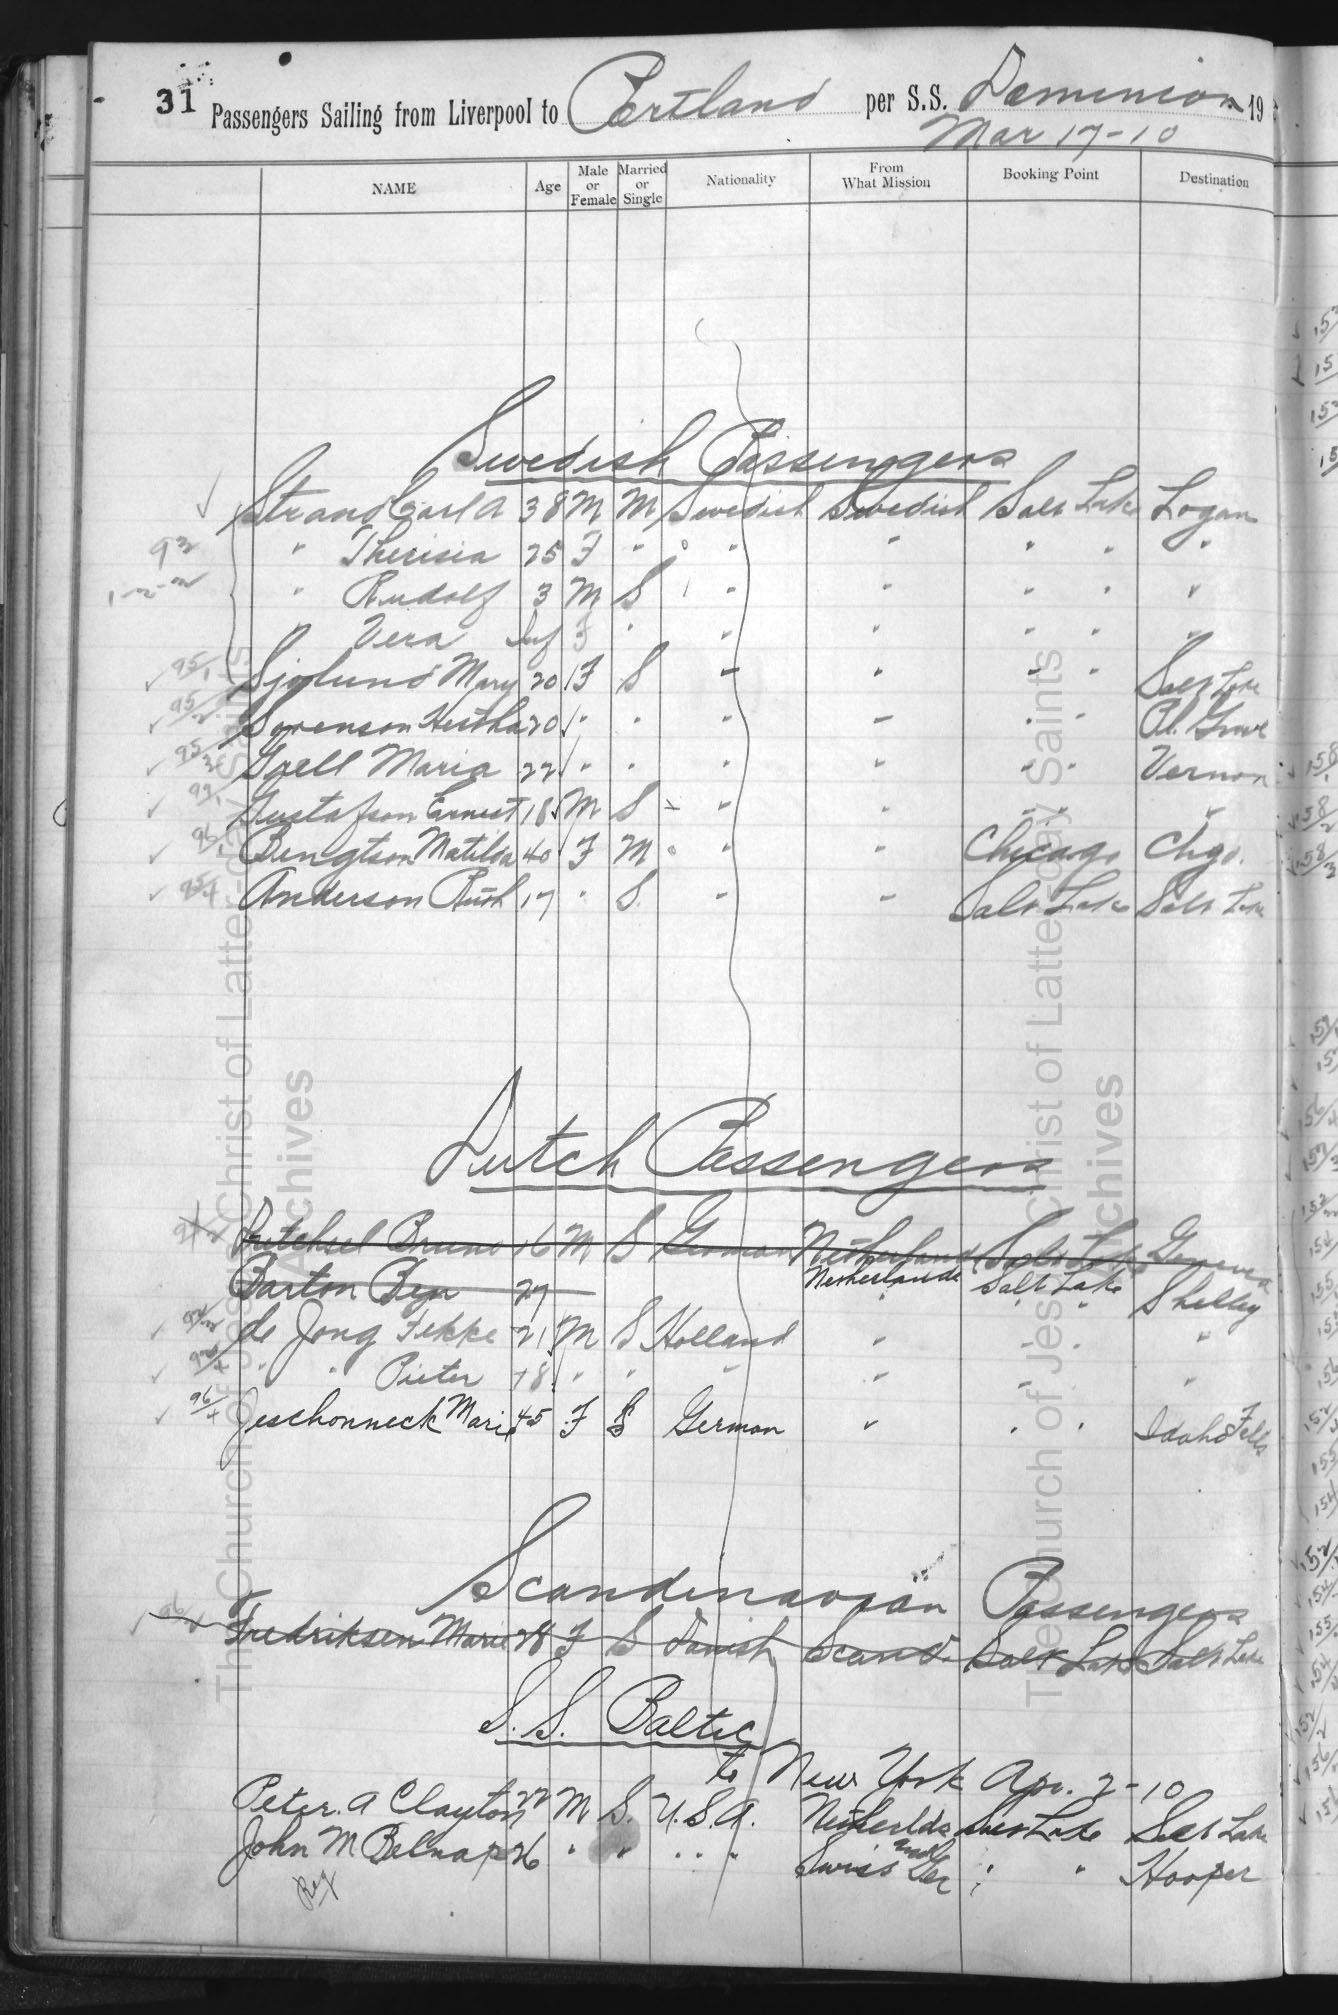 31 Passengers Sailing from Liverpool to Portland per S.S. Dominion 19
Mar 17-10
NAME Age Male or Female Married or Single Nationality From What Mission Booking Point Destination
Swedish Passengers
Strand Carl A 38 M M Swedish Swedish Salt Lake Logan
93 " Therisia 25 F " " " " " "
1-2-2 " Rudolf 3 M S " " " " "
" Vera Inf F " " " " " "
95/1 Sjolund Mary 20 F S " " " " Salt Lake
95/2 Sorenson Hertha 20 " " " " " " Pl. Grove
95/3 Goell Maria 22 " " " " " " Vernon
99/1 Gustafson Ernest 18 M S " " " " "
96/1 Bengtson Matilda 40 F M " " Chicago Chgo.
95/4 Anderson Ruth 17 " S. " " Salt Lake Salt Lake
Dutch Passengers
Bruno 16 M S German Netherland Salt Lake Geneva
Barton Benj 27 Netherlands Salt Lake Shelley
de Jong Fekke 21 M S Holland " " " "
" " Pieter 18 " " " " " "
96/4 Jeschonneck Marie 45 F S German " " " Idaho Falls
Scandinavian Passengers
Fredriksen Marie 28 F S Danish Scand. Salt Lake Salt Lake
S.S. Baltic
to New York Apr. 2-10
Peter. A Clayton 22 M S. U.S.A. Netherlds Salt Lake Salt Lake
John M Belnap 26 " " " " " Swiss and Ger " " Hooper
The Church of Jesus Christ of Latter-day Saints
Archives
The Church of Jesus Christ of Latter-day Saints
Archives